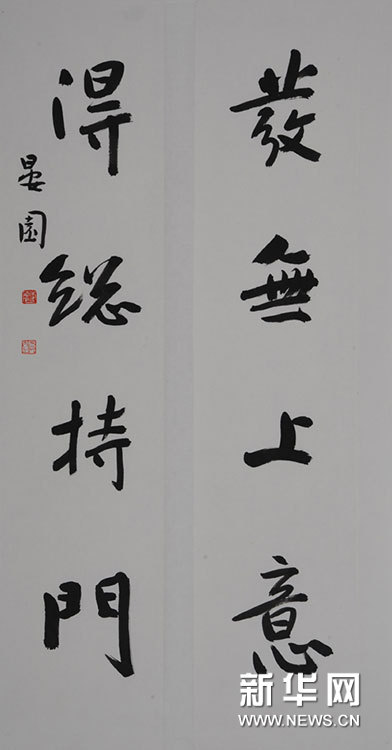 發無上意
得總持門
晏園
新华网
WWW.NEWS.CN